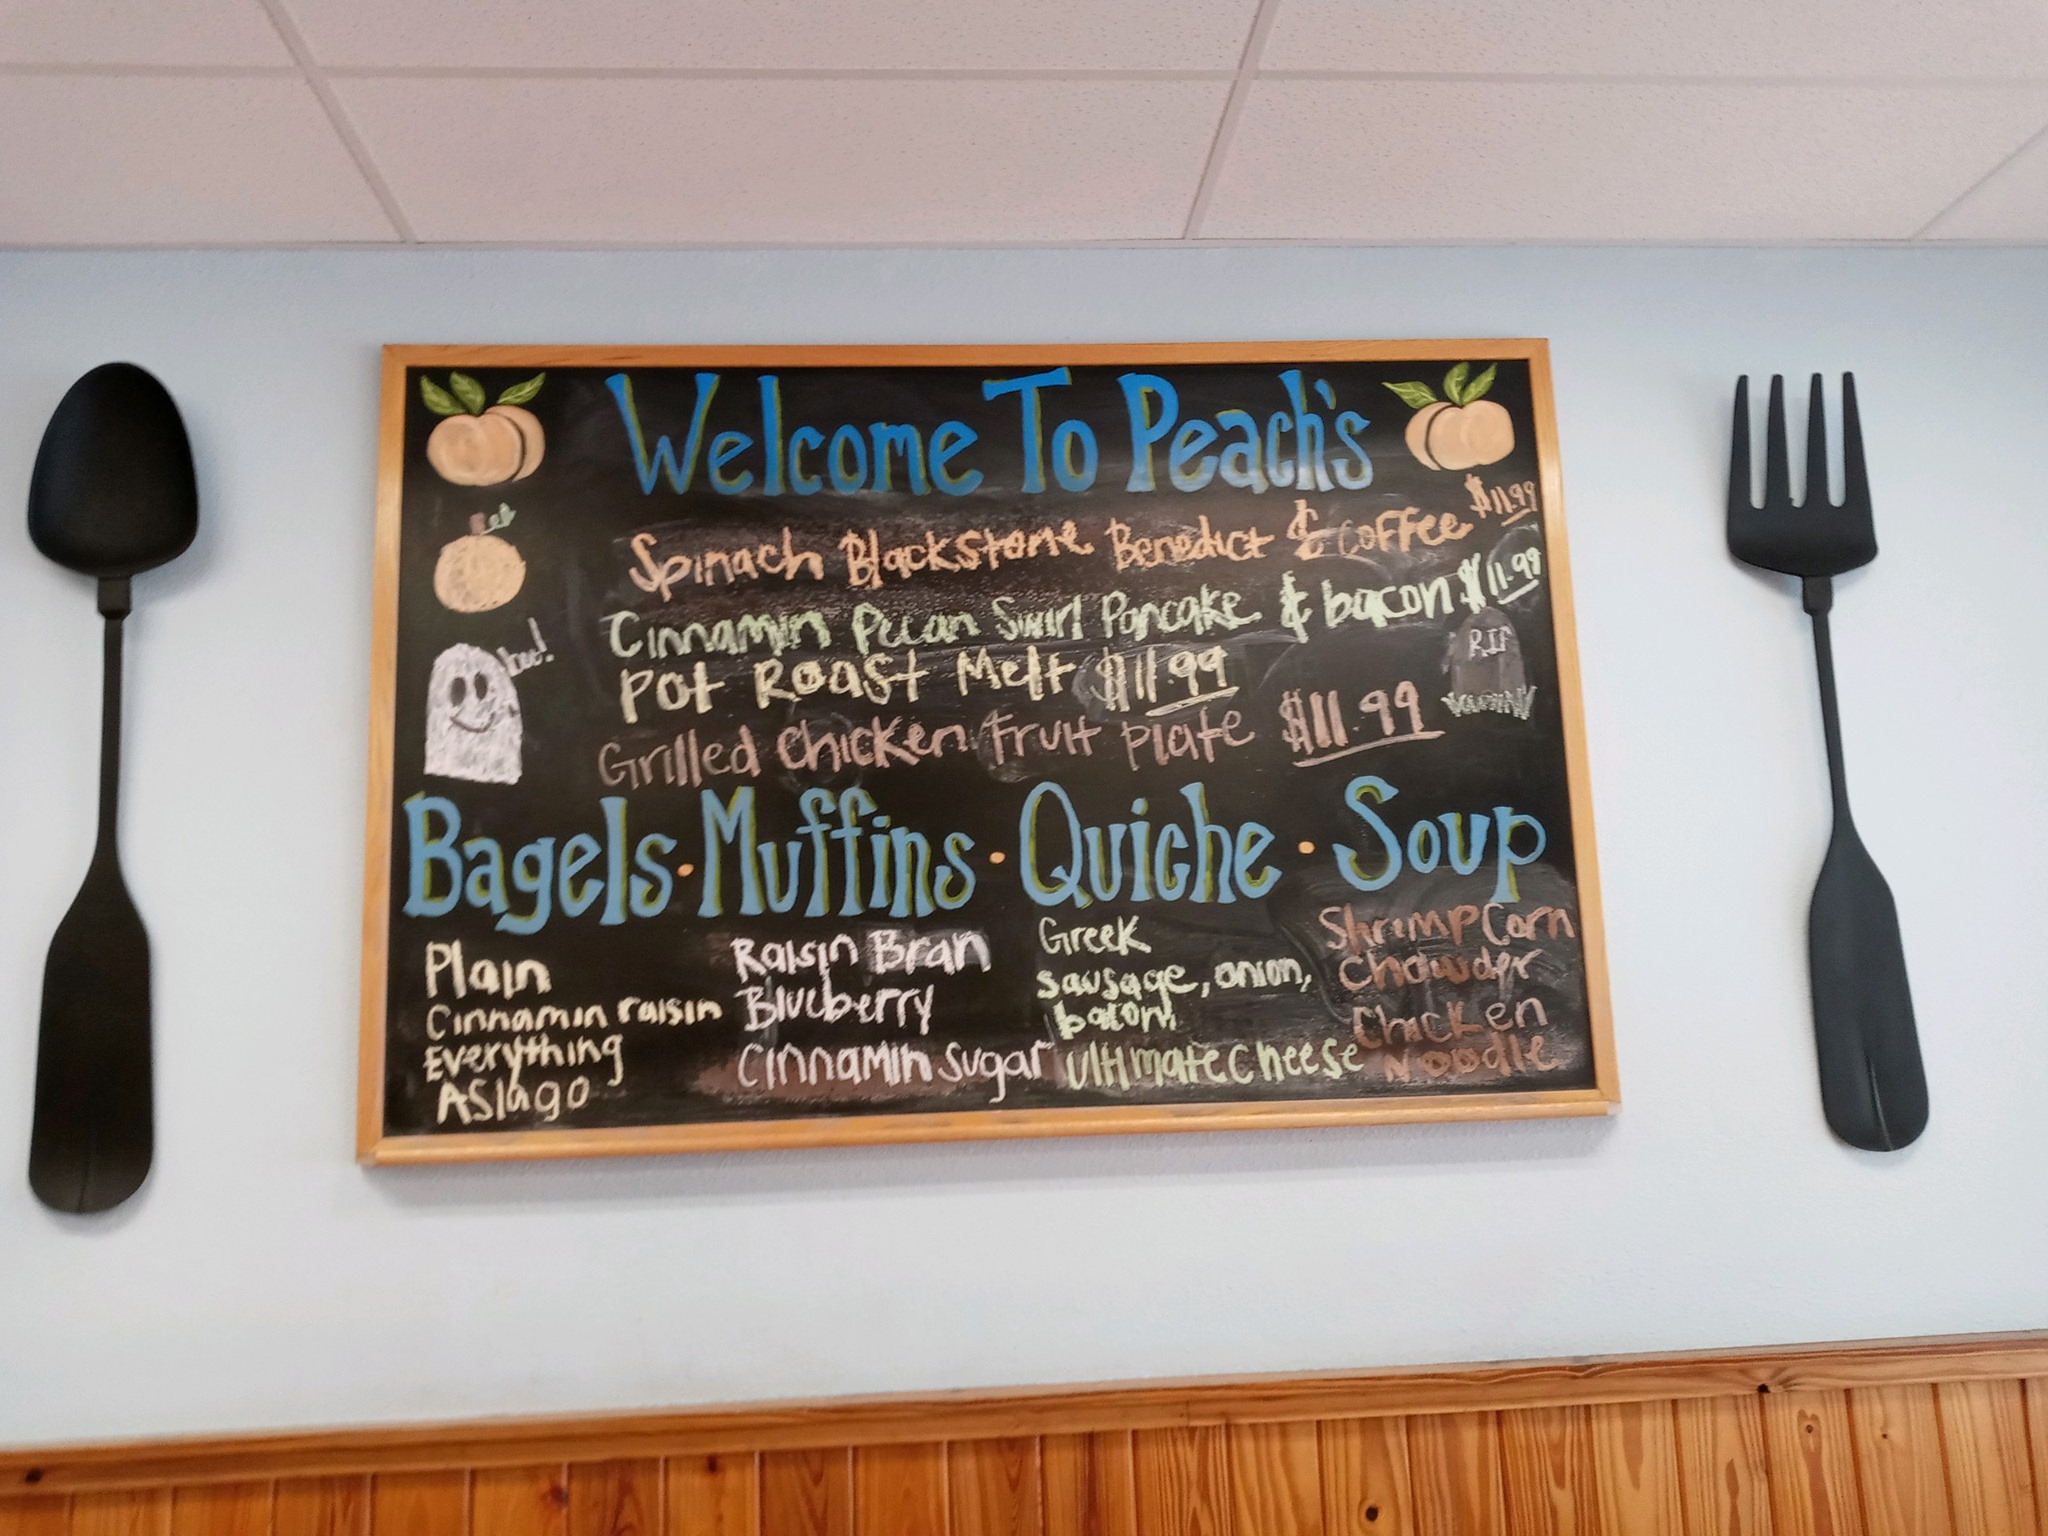 Welcome To Peach's
Spinach Blackstone Benedict & Coffee $11.99
Cinnamin Pecan Swirl Pancake & bacon $11.99
Pot Roast Melt $11.99
Grilled Chicken Fruit plate $11.99
boo!
RIP
Bagels · Muffins · Quiche · Soup
Plain
Cinnamin raisin
Everything
Asiago
Raisin Bran
Blueberry
Cinnamin Sugar
Greek
sausage, onion,
bacon,
ultimate cheese
Shrimp Corn
Chowder
Chicken
Noodle